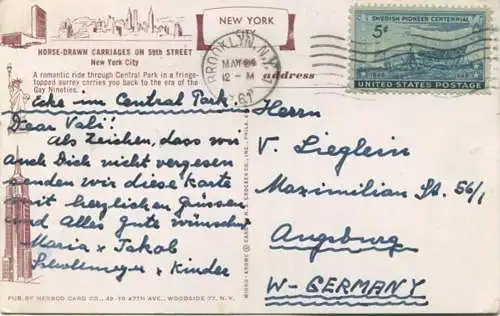 NEW YORK
HORSE-DRAWN CARRIAGES ON 59th STREET
New York City
A romantic ride through Central Park in a fringe-
topped surrey carries you back to the era of the
Gay Nineties.
address
BROOKLYN, N.Y.
MAY 24
12-M
SWEDISH PIONEER CENTENNIAL
5¢
1848 1948
UNITED STATES POSTAGE
Ecke im Central Park.
Dear Vali!
Als Zeichen, dass wir
auch Dich nicht vergessen
senden wir diese Karte
mit herzlichen Grüssen
und Alles gute wünschen
Maria & Jakob
& Kinder
Herrn
V. Lieglein
Maximilian St. 56/1
Augsburg
W-GERMANY
PUB. BY HERBCO CARD CO., 49-10 47TH AVE., WOODSIDE 77, N.Y.